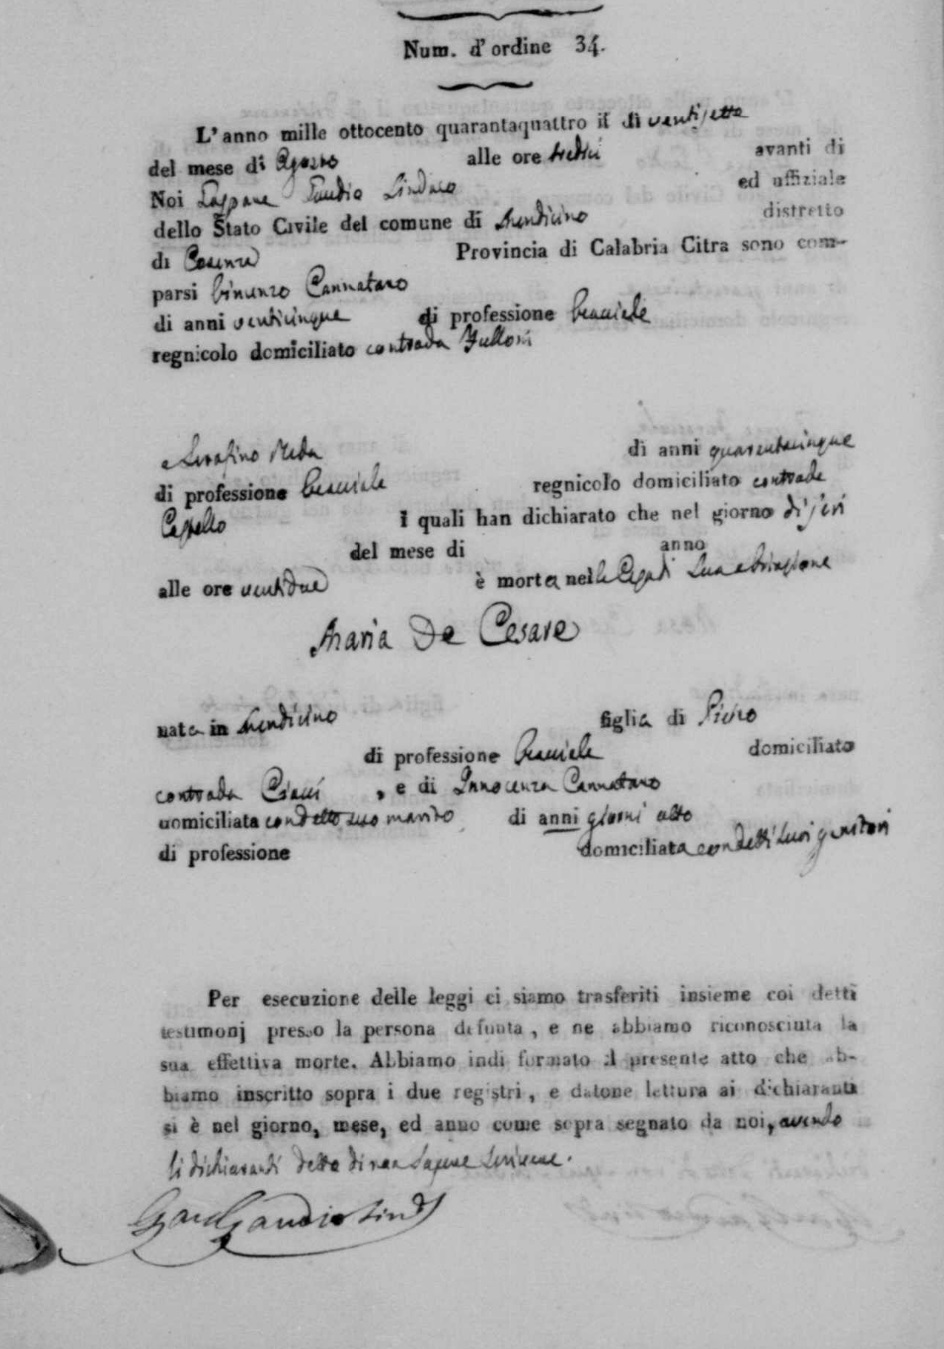 Num. d'ordine 34.
L'anno mille ottocento quarantaquattro il dì ventisette
del mese di Agosto alle ore tredici avanti di
Noi Gaspare Gaudio Sindaco ed uffiziale
dello Stato Civile del comune di Mendicino distretto
di Cosenza Provincia di Calabria Citra sono com-
parsi Vincenzo Cannataro
di anni venticinque di professione bracciale
regnicolo domiciliato contrada
e Serafino Reda di anni quarantacinque
di professione bracciale regnicolo domiciliato contrada
i quali han dichiarato che nel giorno di jeri
del mese di anno
alle ore ventidue è morta nella Casa di sua abitazione
Maria De Cesare
nata in Mendicino figlia di Pietro
di professione bracciale domiciliato
contrada , e di Innocenza Cannataro
domiciliata con detto suo marito di anni giorni otto
di professione domiciliata con detti suoi genitori
Per esecuzione delle leggi ci siamo trasferiti insieme coi detti
testimonj presso la persona defunta, e ne abbiamo riconosciuta la
sua effettiva morte. Abbiamo indi formato il presente atto che ab-
biamo inscritto sopra i due registri, e datone lettura ai dichiaranti
si è nel giorno, mese, ed anno come sopra segnato da noi, avendo
li dichiaranti detto di non sapere scrivere.
Gaudio Sind